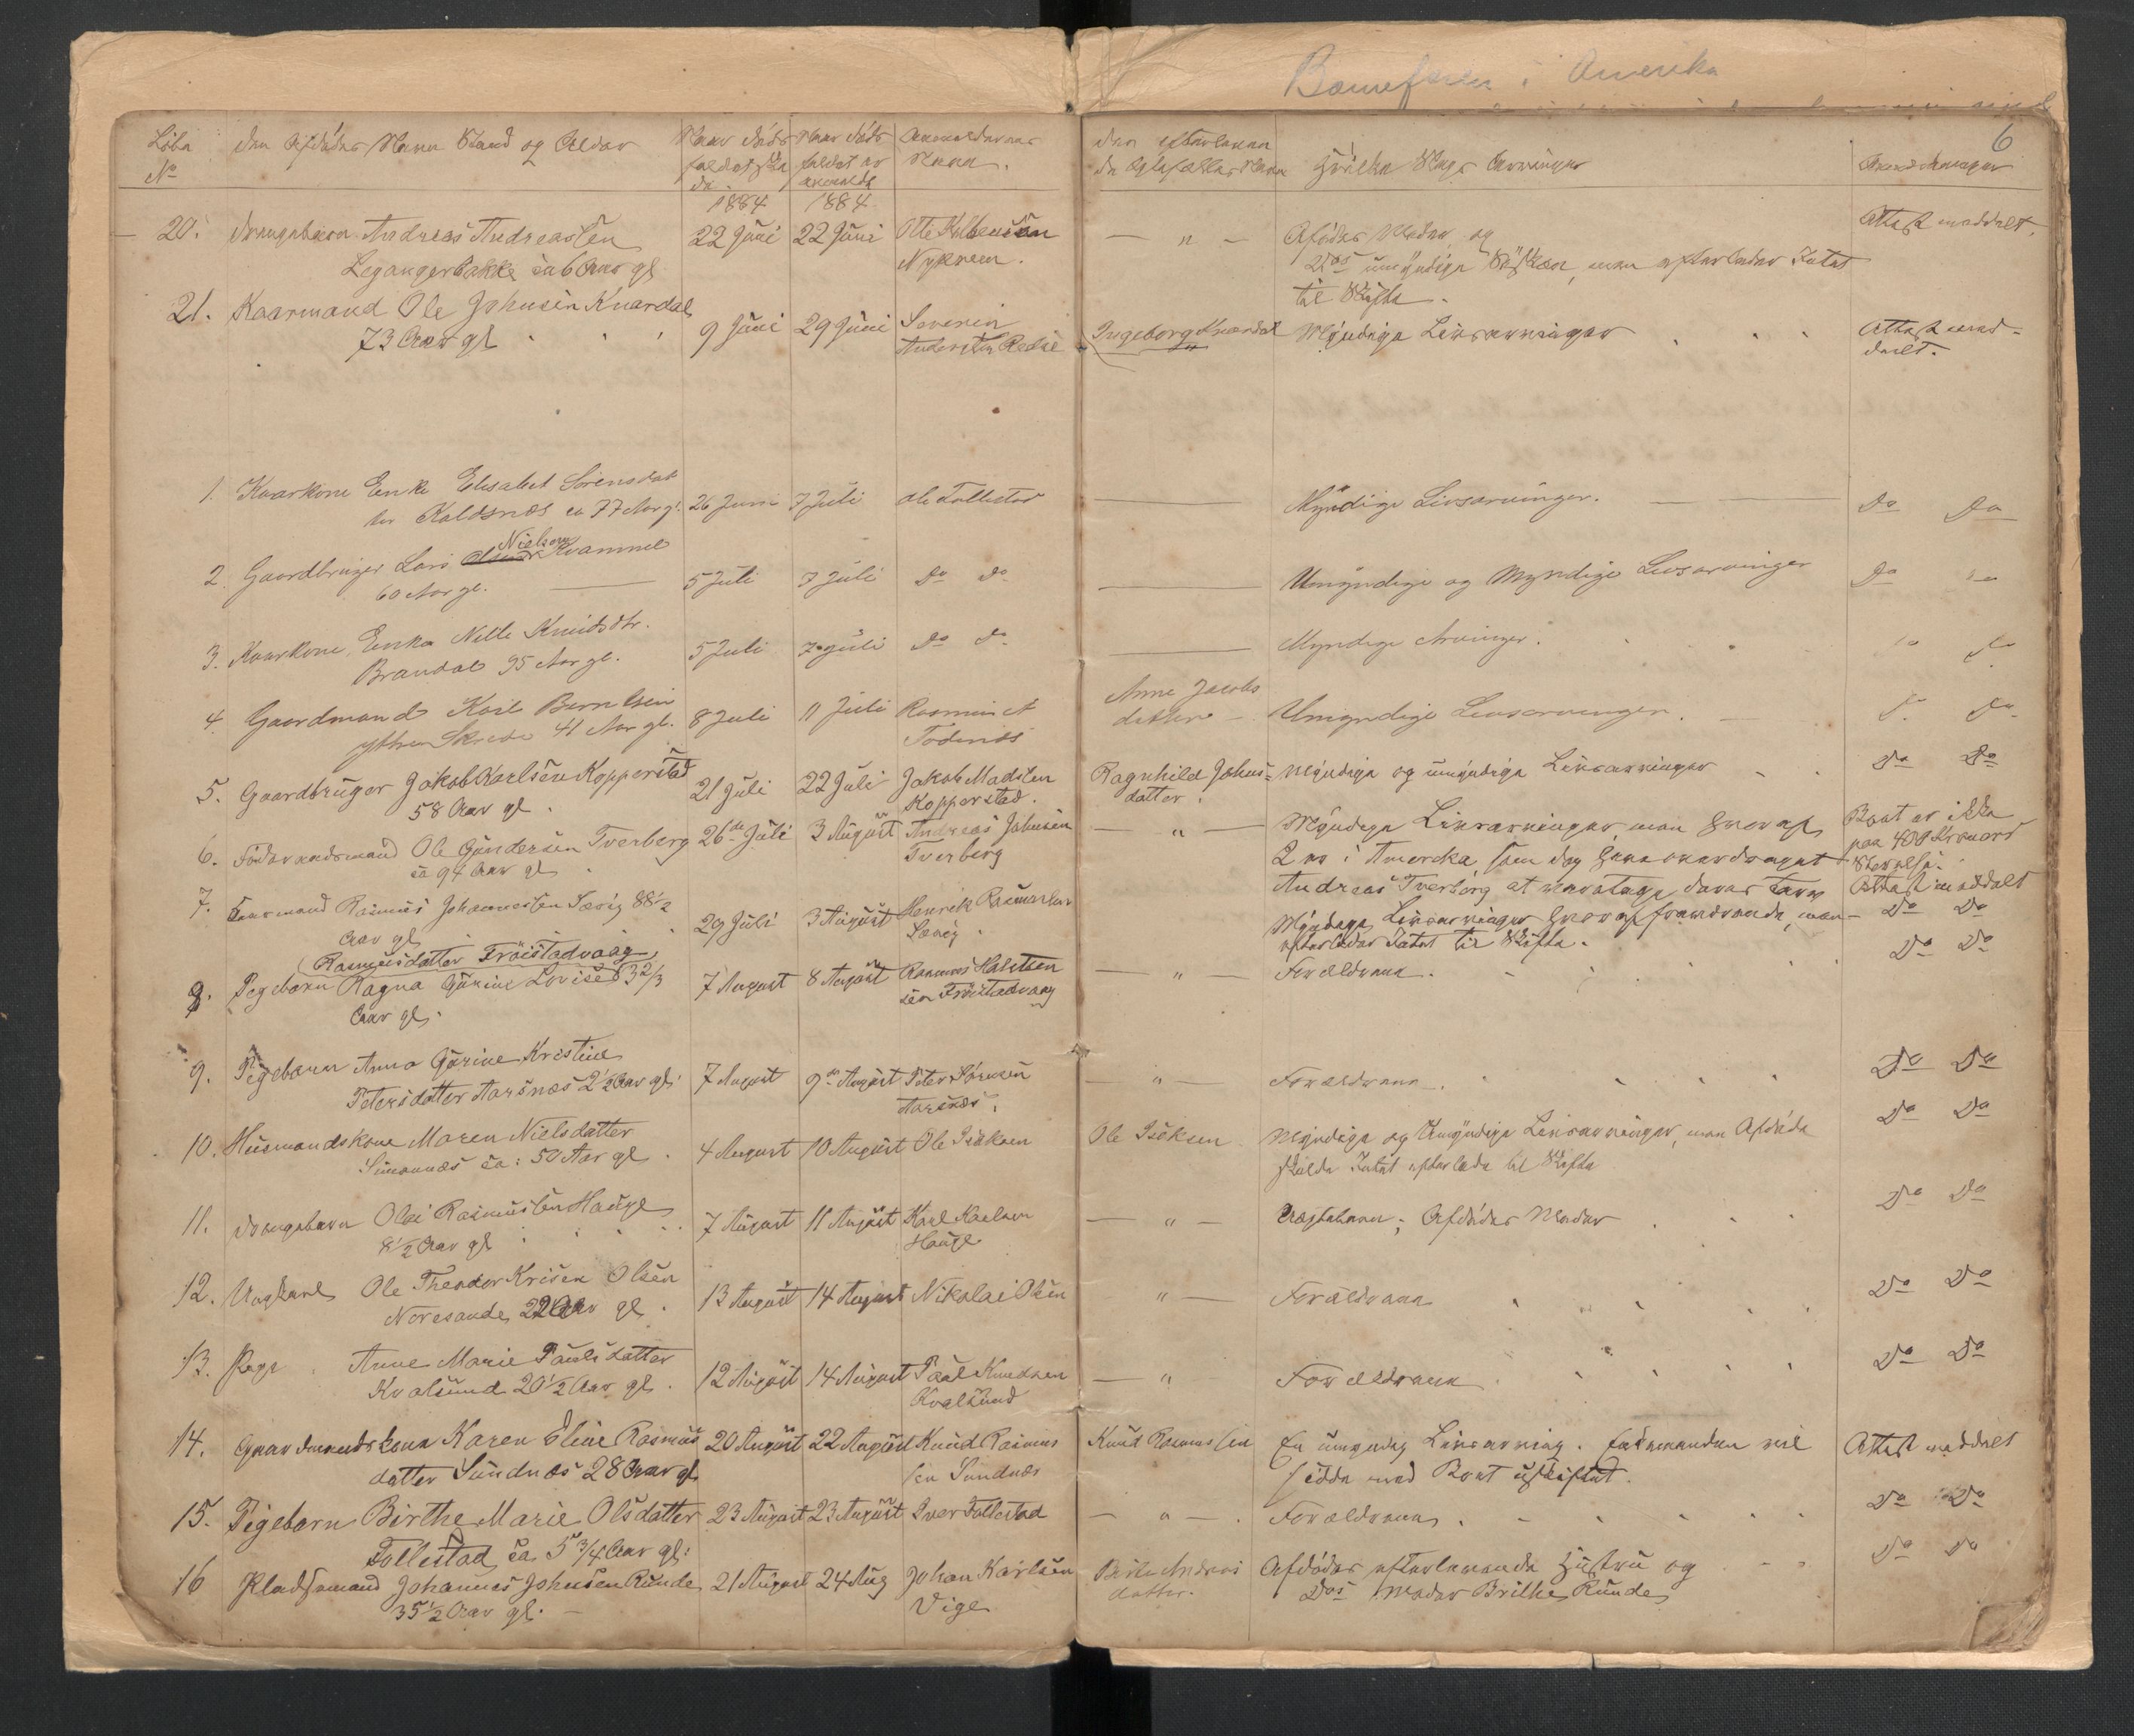 i Amerika
6
Løbe
No
den Afdødes Navn Stand og Alder
Naar Døds
faldet skede
1884
Naar Døds
faldet er
anmeldt
1884
Anmelderens
Navn.
den efterlevende Ægtefælles Navn
Hvilke Slags Arvinger
Anmærkninger
20. Drengebarn Andreas Andreassen
Legangerbakke ca 6 Aar gl
22 Juni
22 Juni
Otte
— " —
Afdødes Moder og
Dos umyndige Søskend, men efterlader Intet
til Skifte.
Attest meddelt.
21. Kaarmand Ole Johnsen Knardal
73 Aar gl
9 Juni
29 Juni
Severin
Andersen
Ingeborg Knardal
Myndige Livsarvinger
Attest med-
delt.
1. Kaarkone Enke Elisabet Sørensdat
ter Koldsnæs ca 77 Aar gl.
26 Juni
7 Juli
Ole Tollestad
Myndige Livsarvinger.
Do Do
2. Gaardbruger Lars Nielsen Kvamme
60 Aar gl.
5 Juli
7 Juli
Do Do
Umyndige og Myndige Livsarvinger
Do Do
3. Kaarkone Enke Nille Knudsdtr.
Brandal 95 Aar gl.
5 Juli
7 Juli
Do Do
Myndige Arvinger.
Do Do
4. Gaardmand Karl Berntsen
ythre Skrede 41 Aar gl.
8 Juli
11 Juli
Rasmus A
Anne Jacobs
datter
Umyndige Livsarvinger.
Do Do
5. Gaardbruger Jakob Karlsen Kopperstad
58 Aar gl.
21 Juli
22 Juli
Jakob Madsen
Kopperstad.
Ragnhild Johns=
datter.
Myndige og umyndige Livsarvinger
Do Do
6. Føderaadsmand Ole Gundersen Tverberg
ca 94 Aar gl
26de Juli
3 August
Andreas Johnsen
Tverberg
— " —
Myndige Livsarvinger, men hvoraf
2 er i Amerika, som dog have
Andreas Tverberg at varetage deres Tarv
Boet er ikke
paa 400 Kroners
Størrelse.
Attest meddelt
7. Kaarmand Rasmus Johannessen Sævig 88 1/2
Aar gl
29 Juli
3 August
Henrik Rasmussen
Sævig
Myndige Livsarvinger hvoraf fraværende, men
efterlader Intet til Skifte.
Do Do
8. Pigebarn Ragna Gurine Lovise 3 2/3
(Rasmusdatter Frøistadvaag)
Aar gl.
7 August
8 August
Rasmus Halsten
sen Frøistadvaag
— " —
Forældrene.
Do Do
9. Pigebarn Anna Gurine Kristine
Petersdatter Aarsnæs 2 1/2 Aar gl.
7 August
9de August
Peter Sørensen
Aarsnæs.
— " —
Forældrene.
Do Do
10. Husmandskone Maren Nielsdatter
Simonnæs ca: 50 Aar gl
4 August
10 August
Ole Isaksen
Ole Isaksen
Myndige og Umyndige Livsarvinger, men Afdøde
skulde Intet efterlade til Skifte
Do Do
11. Drengebarn Olai Rasmussen Hauge
8 1/2 Aar gl
7 August
11 August
Karl Karlsen
Hauge
— " —
Uægtebarn; Afdødes Moder
Do Do
12. Ungkarl Ole Theodor Krisen Olsen
Voresande, 22 Aar gl.
13 August
14 August
Nikolai Olsen
— " —
Forældrene
Do Do
13. Pige Anne Marie Paulsdatter
Kvalsund 20 1/2 Aar gl.
12 August
14 August
Paul Knudsen
Kvalsund
— " —
Forældrene
Do Do
14. Gaardmandskone Karen Eline Rasmus
datter Sundnæs 28 Aar gl
20 August
22 August
Knud Rasmus
sen Sundnæs
Knud Rasmussen
En umyndig Livsarving. Enkemanden vil
sidde med Boet uskiftet.
Attest meddelt
15. Pigebarn Birthe Marie Olsdatter
Tollestad ca. 5 3/4 Aar gl:
23 August
23 August
Iver Tollestad
— " —
Forældrene.
Do Do
16 Pladsemand Johannes Johnsen Runde
35 1/2 Aar gl.
21 August
24 Aug
Johan Karlsen
Vige
datter.
Afdødes efterlevende Hustru og
Dos Moder Brithe Runde
Do Do